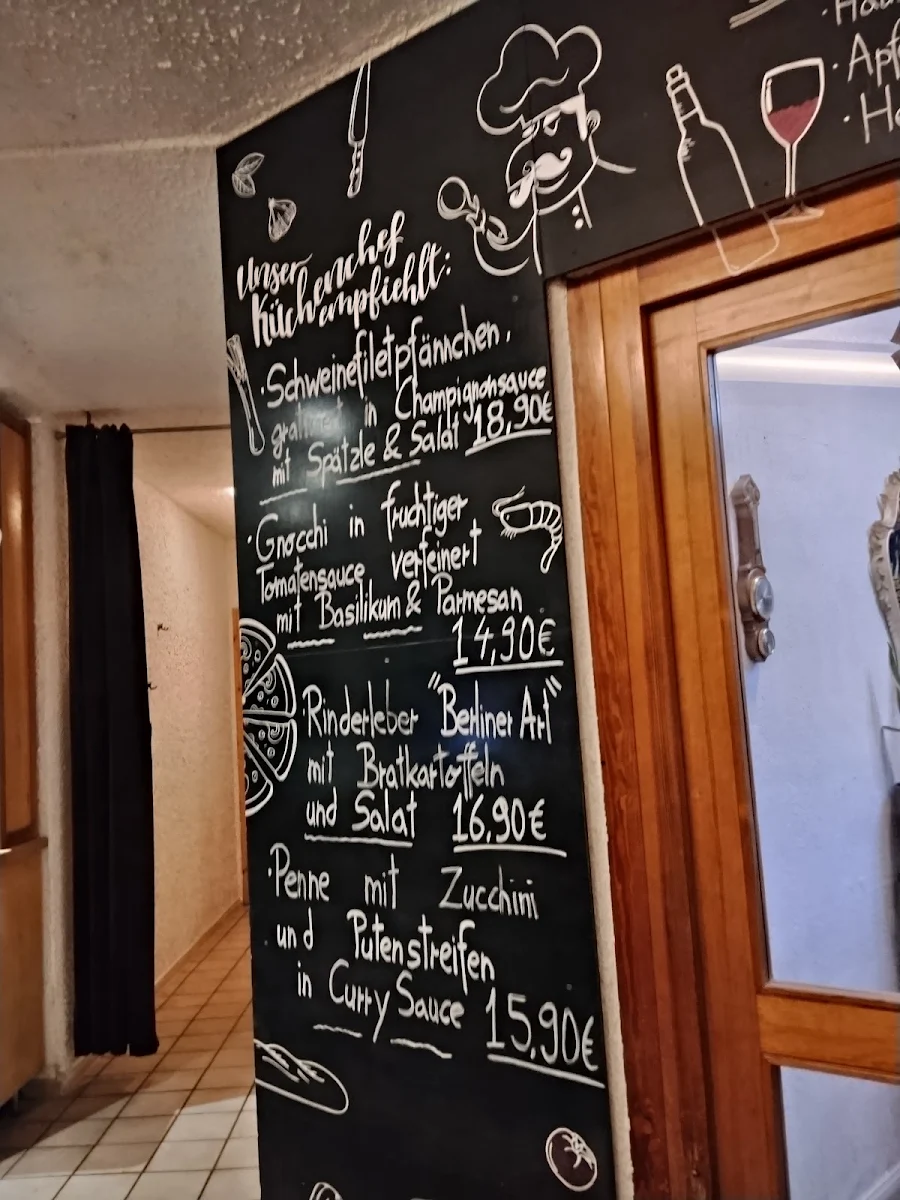 Unser
Küchenchef
empfiehlt:
· Schweinefiletpfännchen,
gratiniert in Champignonsauce
mit Spätzle & Salat 18,90€
· Gnocchi in fruchtiger
Tomatensauce verfeinert
mit Basilikum & Parmesan
14,90€
· Rinderleber "Berliner Art"
mit Bratkartoffeln
und Salat 16,90€
· Penne mit Zucchini
und Putenstreifen
in Curry Sauce 15,90€